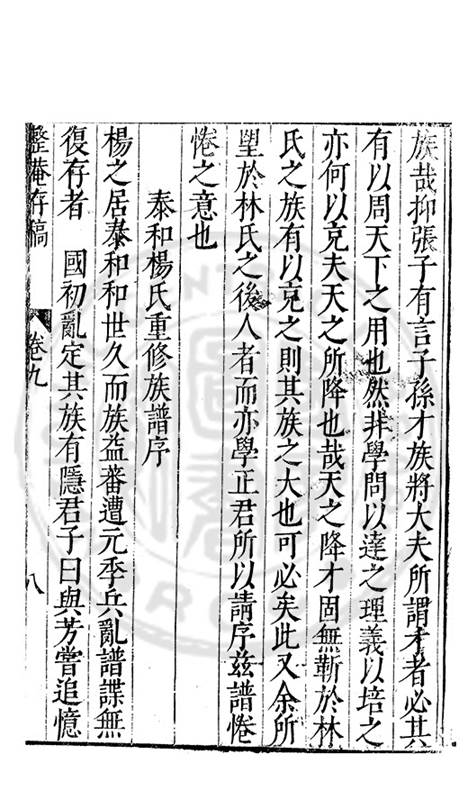 族哉抑張子有言子孫才族將大夫所謂才者必其
有以周天下之用也然非學問以達之理義以培之
亦何以克夫天之所降也哉天之降才固無靳於林
氏之族有以克之則其族之大也可必矣此又余所
望於林氏之後人者而亦學正君所以請序兹譜惓
惓之意也
泰和楊氏重修族譜序
楊之居泰和和世久而族益蕃遭元季兵亂譜諜無
復存者 國初亂定其族有隱君子曰與芳嘗追憶
整菴存稿 卷九 八